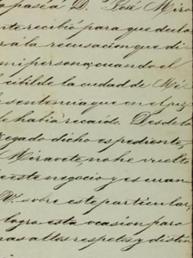 pasea D. José Mira
te recibió para que decla
ra la recusacion que di
mi persona, cuando el
Civil de la ciudad de Mé
sentencia que en el ju
le habia recaido. Desde la
egado dicho espediente,
Miravete, no he vuelto
este negocio y es cuan
V. sobre este particular,
logro esta ocasion para
mas altos respetos y distin